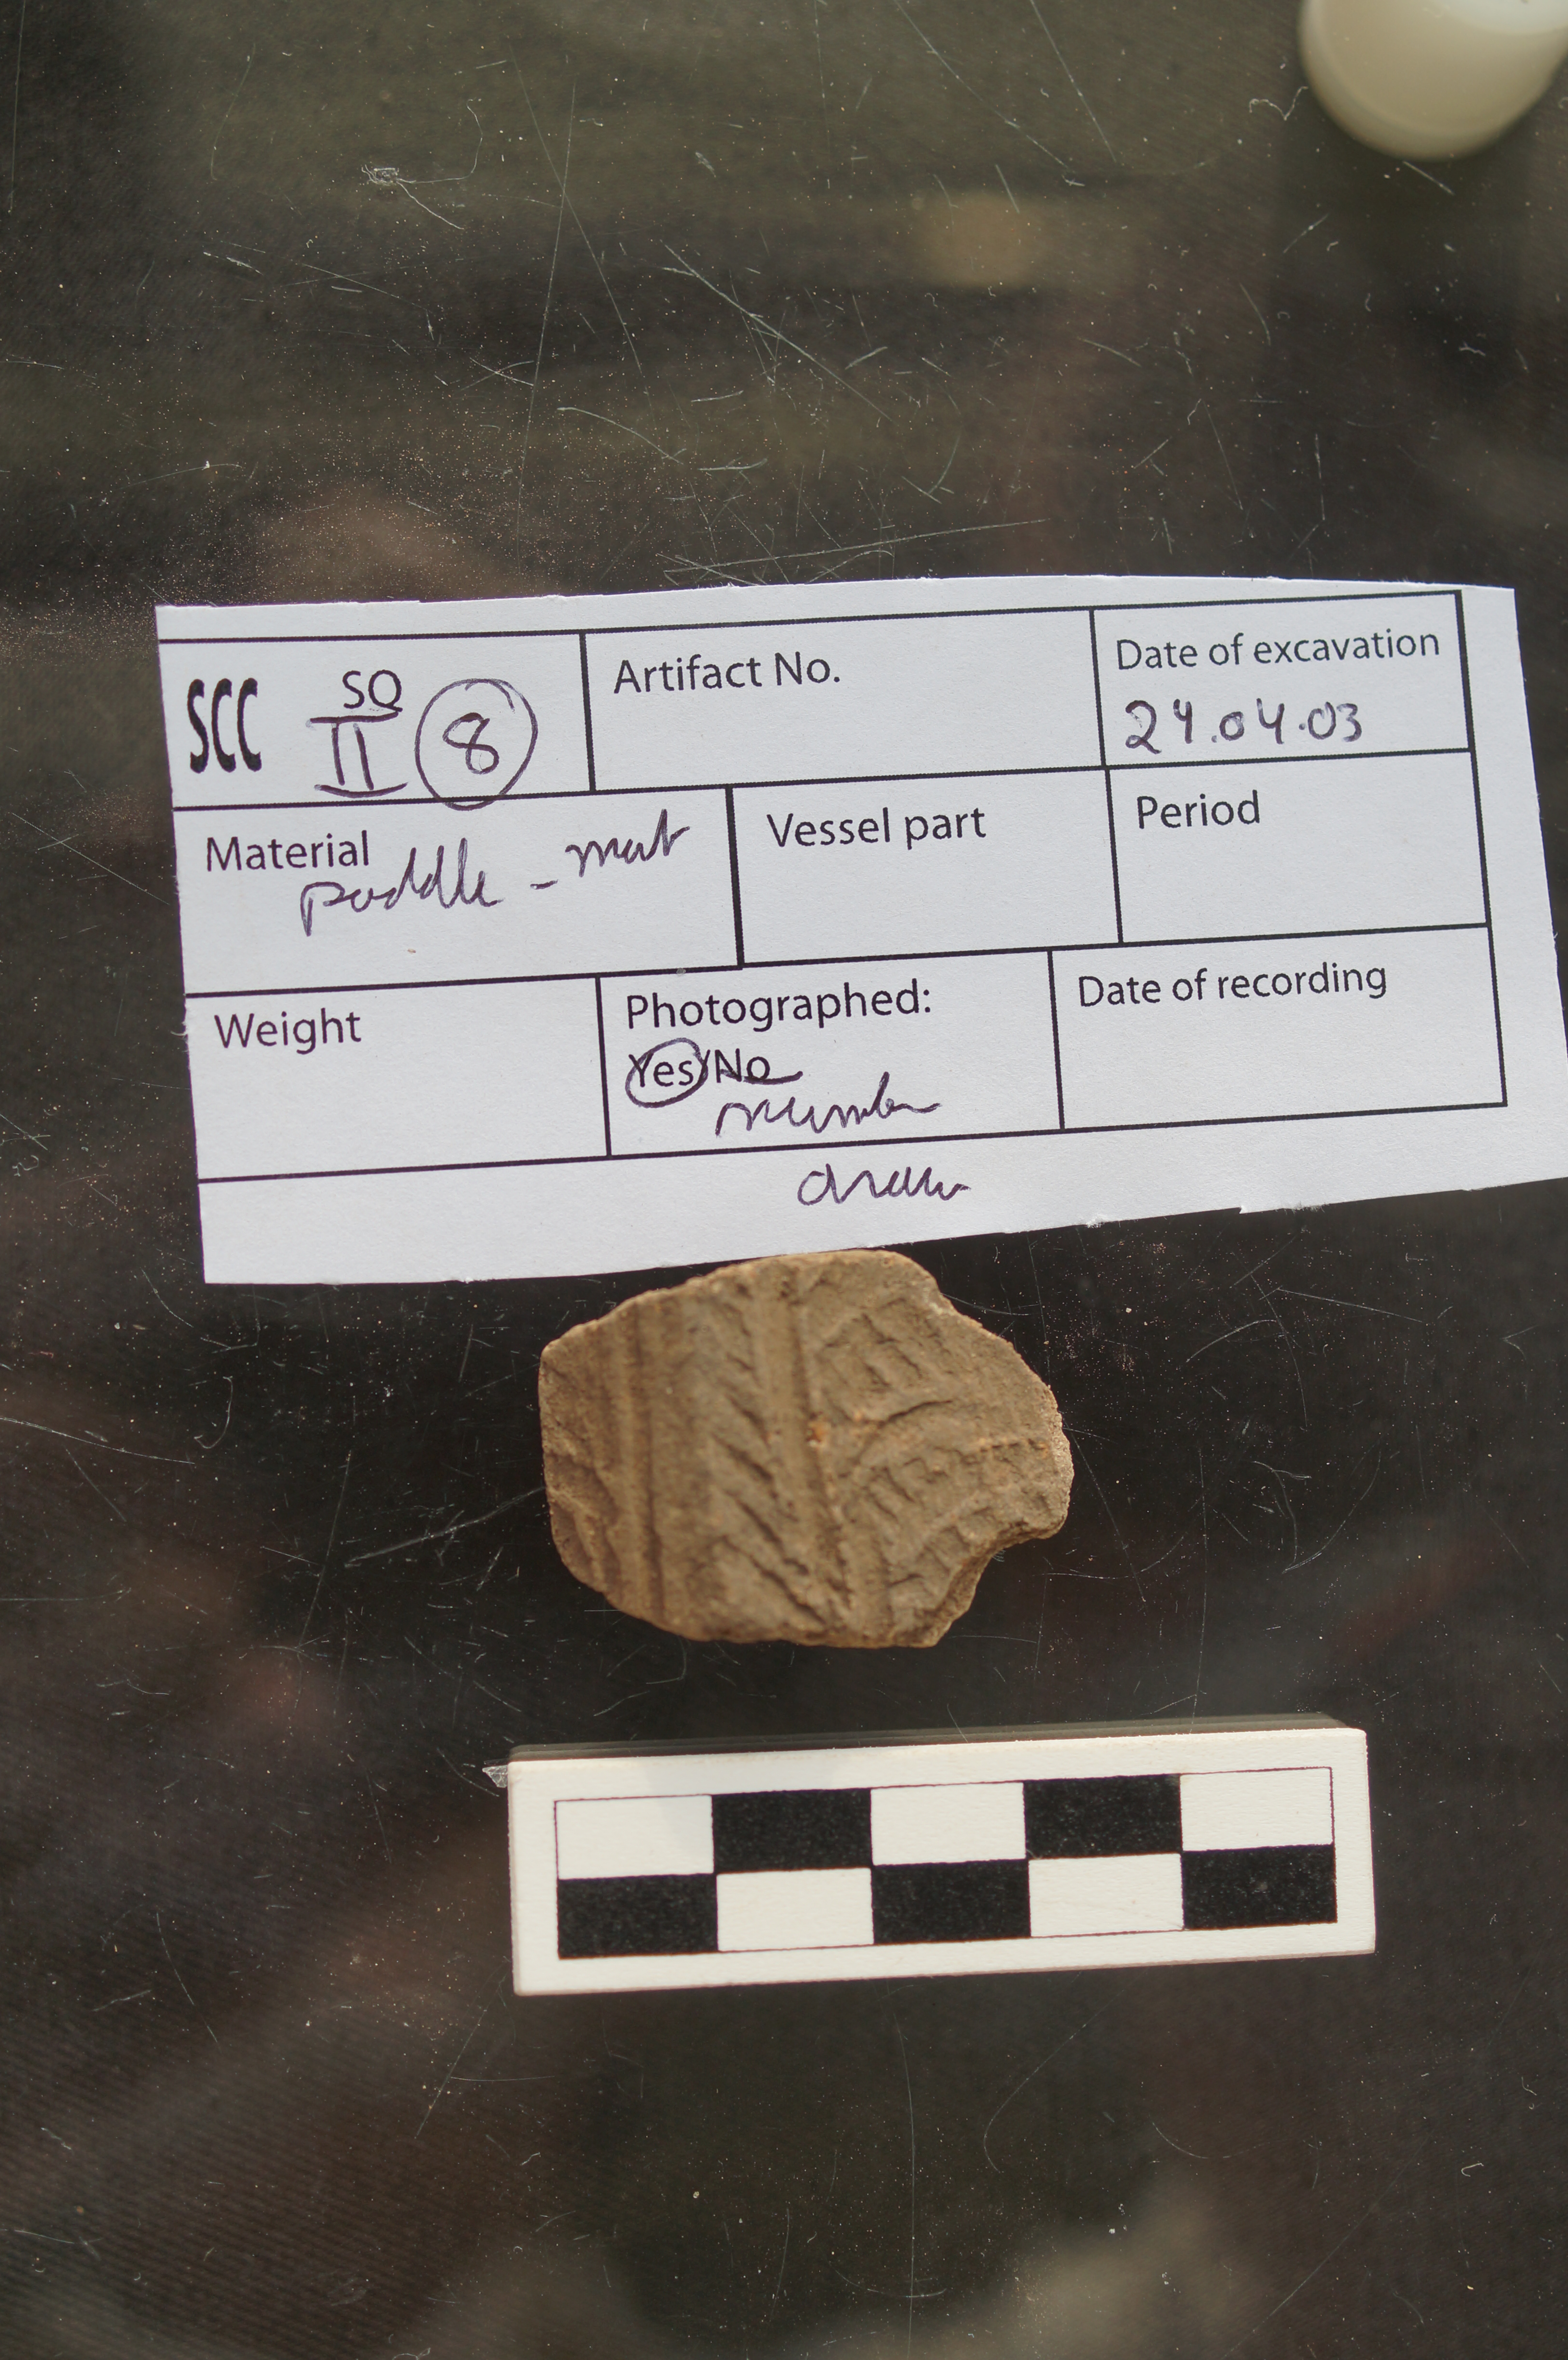 SCC SQ II 8
Artifact No.
Date of excavation
24.04.03
Material
paddle - mat
Vessel part
Period
Weight
Photographed:
Yes/No
number
draw
Date of recording